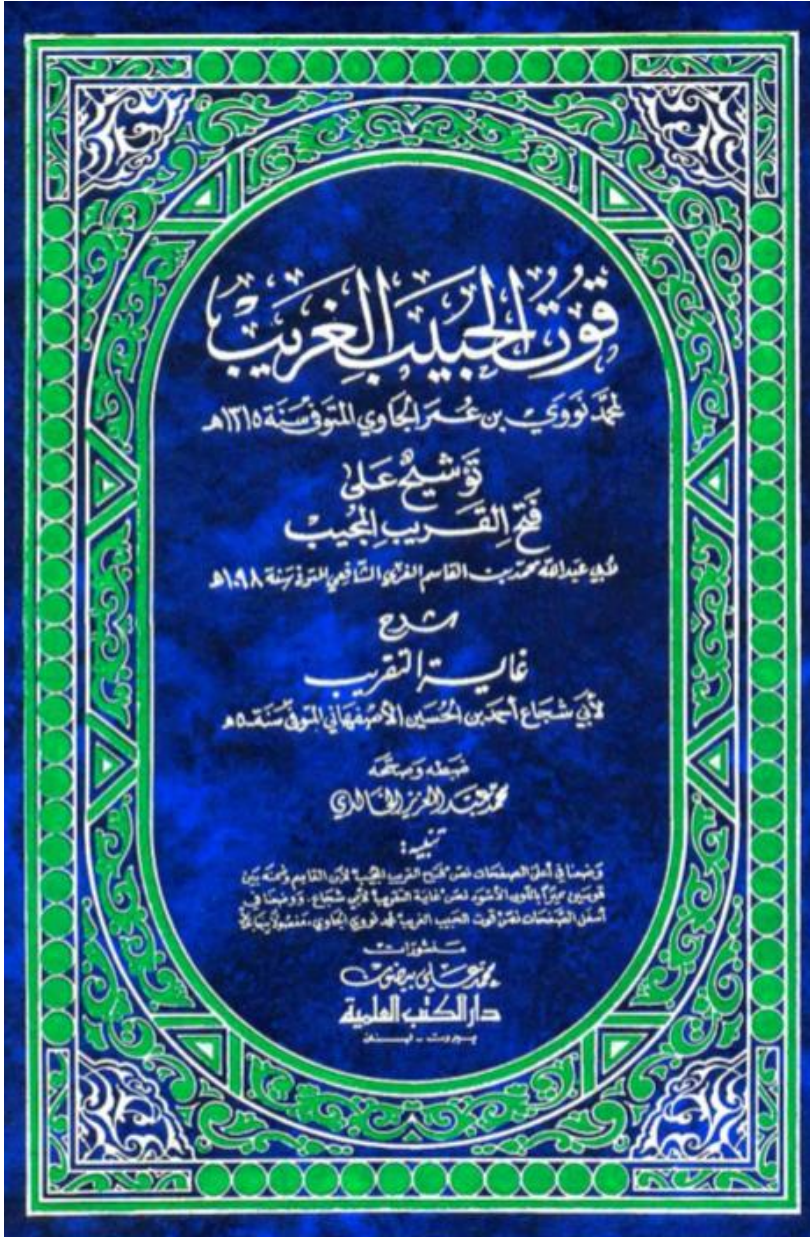 قوت الحبيب الغريب
لمحمد نووي بن عمر الجاوي المتوفى سنة ١٣١٥هـ
توشيح على
فتح القريب المجيب
لأبي عبد الله محمد بن القاسم الغزي الشافعي المتوفى سنة ١٠٩٨هـ
شرح
غاية التقريب
لأبي شجاع أحمد بن الحسين الأصفهاني المتوفى سنة
ضبطه وصححه
محمد عبد العزيز الخالدي
تنبيه:
وضعنا في أعلى الصفحات نص "فتح القريب المجيب" لابن القاسم وضمنه بين
قوسين مميزاً باللون الأسود نص "غاية التقريب" لأبي شجاع. ووضعنا في
أسفل الصفحات نص "قوت الحبيب الغريب" لمحمد نووي الجاوي، مفصولاً بينها
منشورات
محمد علي بيضون
دار الكتب العلمية
بيروت - لبنان